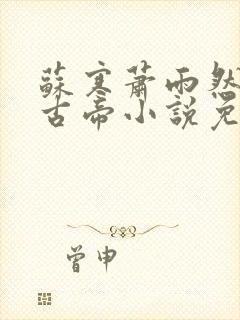 蘇寒蕭雨然
古帝小說免
曾申